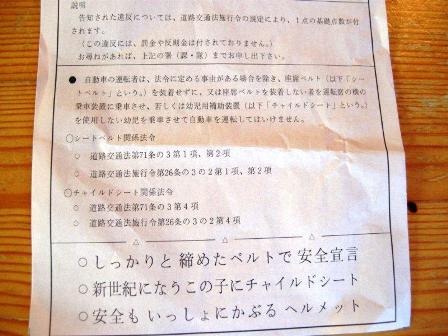 説明
告知された違反については、道路交通法施行令の規定により、1点の基礎点数が付
されます。
(この違反には、罰金や反則金は付されておりません。)
お尋ねがあれば、上記の署(課・隊)までお申し出下さい。
● 自動車の運転者は、法令に定める事由がある場合を除き、座席ベルト(以下「シー
トベルト」という。)を装着せずに、又は座席ベルトを装着しない者を運転席の横の
乗車装置に乗車させ、若しくは幼児用補助装置(以下「チャイルドシート」という。)
を使用しない幼児を乗車させて自動車を運転してはいけません。
○シートベルト関係法令
○ 道路交通法第71条の3第1項、第2項
○ 道路交通法施行令第26条の3の2第1項、第2項
○チャイルドシート関係法令
○ 道路交通法第71条の3第4項
○ 道路交通法施行令第26条の3の2第4項
○しっかりと 締めたベルトで 安全宣言
○新世紀になうこの子にチャイルドシート
○安全も いっしょにかぶる ヘルメット